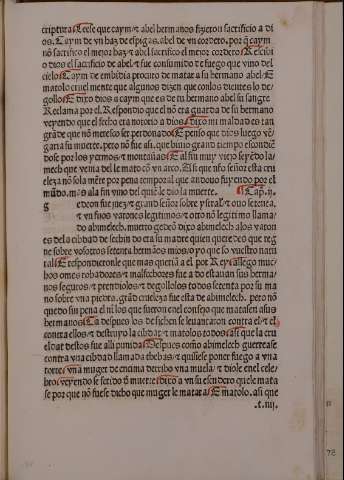 criptura Leese que caym ⁊ abel hermanos fizieron sacrificio a di
os. Caym de vn haz de espigas. abel de vn cordero, por q̃ caym
nõ sacrifico el mejor haz ⁊ abel sacrifico el mejor cordero Rescibi
o dios el sacrificio de abel ⁊ fue consumido de fuego que vino del
cielo Caym de embidia procuro de matar a su hermano abel E
matolo cruel mente que algunos dizen que con los dientes lo de
gollo E dixo dios a caym que es de tu hermano abel su sangre
Reclama por el. Respondio que el nõ era guarda de su hermano
veyendo que el fecho era notorio a dios dixo mi maldad es tan
grãde que nõ meresco ser perdonado E penso que dios luego vẽ
garia su muerte. pero nõ fue asi, que biuio grand tiempo escondiẽ
dose por los yermos ⁊ montañas E al fin muy viejo seyẽdo la
mech que venia del le mato cõ vn arco. Asi que nr̃o señor esta cru
eleza nõ sola mẽte con pena temporal que anduuo fuyendo por el
mũdo. mas a la fin vino del quiẽ le dio la muerte. Cap. ij.
g edeon fue juez ⁊ grand señor sobre ysrael ⁊ ouo setenta,
⁊ vn fijos varones legitimos ⁊ otro nõ legitimo llama
do abimelech. muerto gedeõ dixo abimelech a los varon
es de la cibdad de sechin do era su madre quien queredes que reg
ne sobre vosotros setenta hermãos mios / o yo que so vuestro natu
ral E respondieronle que mas queriã a el por Rey E allego muc
hos omes robadores ⁊ malfechores fue a do estauan sus herma/
nos seguros ⁊ prendiolos ⁊ degollolos todos setenta por su ma
no sobre vna piedra. grãd crueleza fue esta de abimelech. pero nõ
quedo sin pena el ni los que fueron en el consejo que matasen a sus
hermanos Ca despues los de sichen se leuantaron contra el ⁊ el
contra ellos ⁊ destruyo la cibdat ⁊ matolos todos asi que la cru
eldat destos fue alli punida Despues como abimelech guerrease
contra vna cibdad llamada thebas ⁊ quisiese poner fuego a vna
torre vna muger de encima derribo vna muela ⁊ diole en el cele/
bro veyendo se ferido a muerte dixo a vn su escudero que le mata
se por que nõ fuese dicho que muger le matara E matolo. asi que
.c. iij.
78